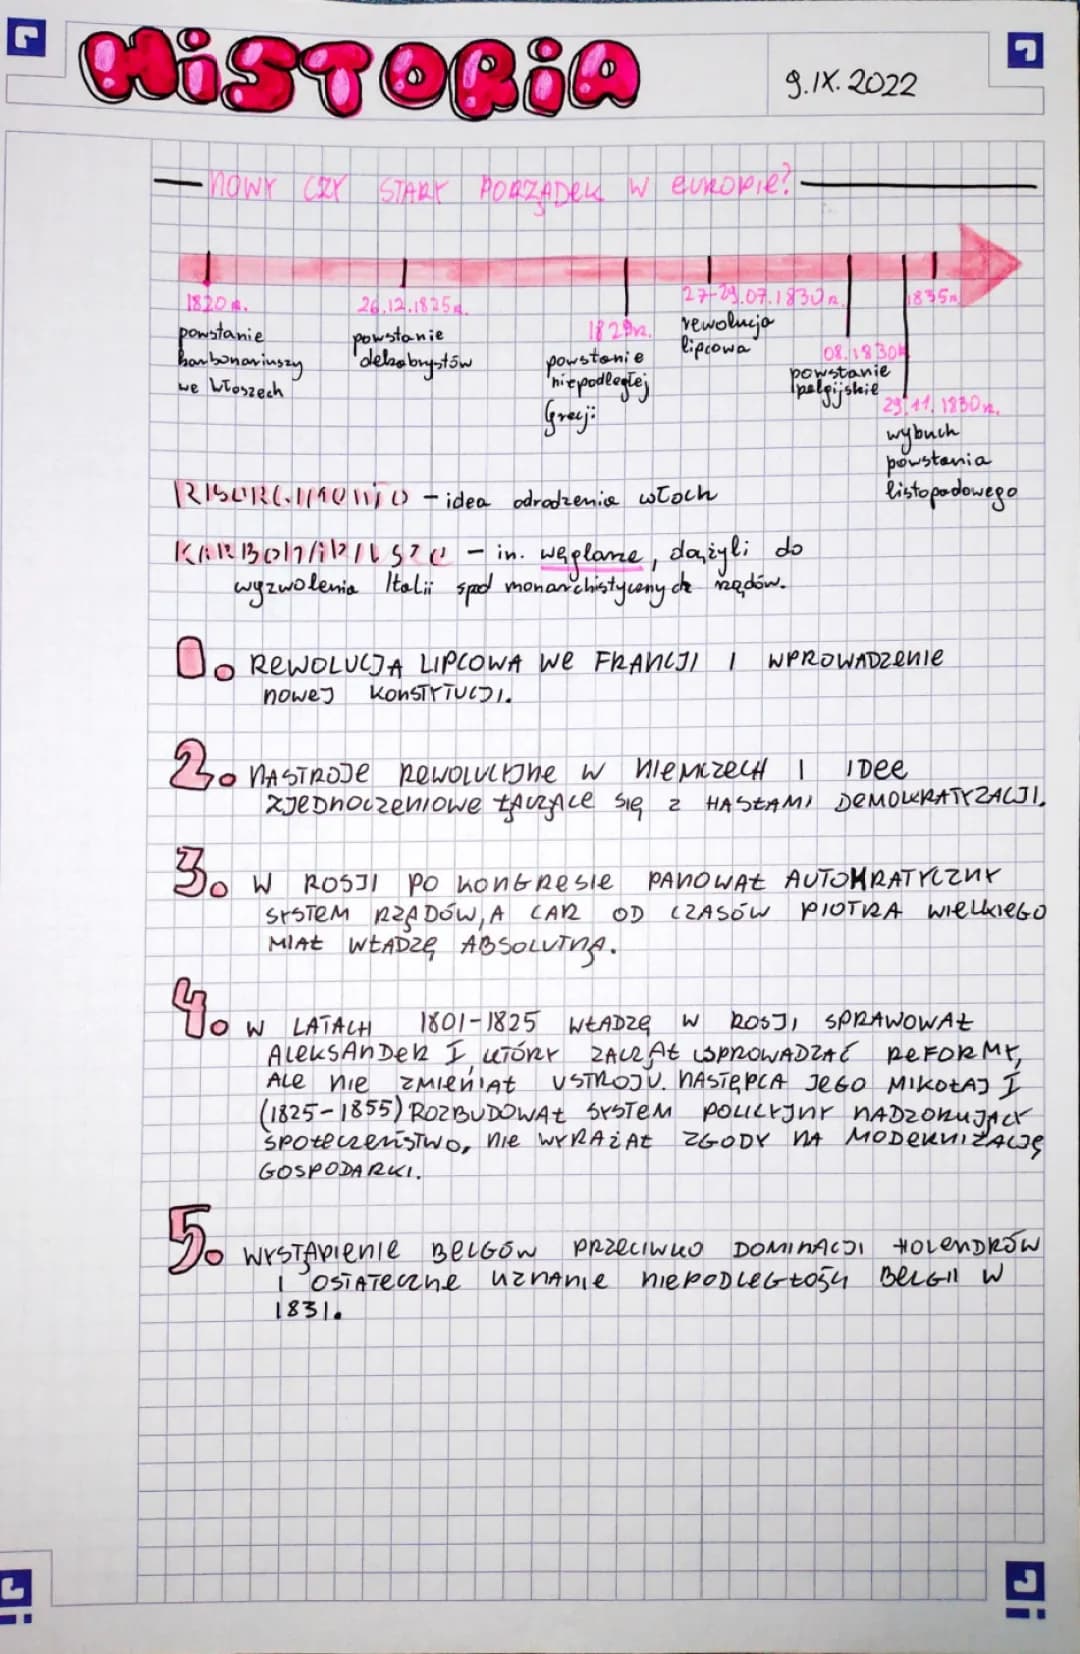 HISTORIA
9.IX.2022
NOWY CZY STARY PORZĄDEK W EUROPIE?
1820r.
powstanie
karbonariuszy
we Włoszech
26.12.1825r.
powstanie
dekabrystów
1829r.
powstanie
niepodległej
Grecji
27-29.07.1830r.
rewolucja
lipcowa
08.1830r.
powstanie
belgijskie
29.11.1830r.
wybuch
powstania
listopadowego
1835r.
RISORGIMENTO - idea odrodzenia włoch
KARBONARIUSZE - in. węglarze, dążyli do
wyzwolenia Italii spod monarchistycznych rządów.
0. REWOLUCJA LIPCOWA WE FRANCJI I WPROWADZENIE
NOWEJ KONSTYTUCJI.
2. NASTROJE REWOLUCYJNE W NIEMCZECH I IDEE
ZJEDNOCZENIOWE ŁĄCZĄCE SIĘ Z HASŁAMI DEMOKRATYZACJI.
3. W ROSJI PO KONGRESIE PANOWAŁ AUTOKRATYCZNY
SYSTEM RZĄDÓW, A CAR OD CZASÓW PIOTRA WIELKIEGO
MIAŁ WŁADZĘ ABSOLUTNĄ.
4. W LATACH 1801-1825 WŁADZĘ W ROSJI SPRAWOWAŁ
ALEKSANDER I, KTÓRY ZACZĄŁ WPROWADZAĆ REFORMY,
ALE NIE ZMIENIAŁ USTROJU. NASTĘPCA JEGO MIKOŁAJ I
(1825-1855) ROZBUDOWAŁ SYSTEM POLICYJNY NADZORUJĄCY
SPOŁECZEŃSTWO, NIE WYRAŻAŁ ZGODY NA MODERNIZACJĘ
GOSPODARKI.
5. WYSTĄPIENIE BELGÓW PRZECIWKO DOMINACJI HOLENDRÓW
I OSTATECZNE UZNANIE NIEPODLEGŁOŚCI BELGII W
1831.